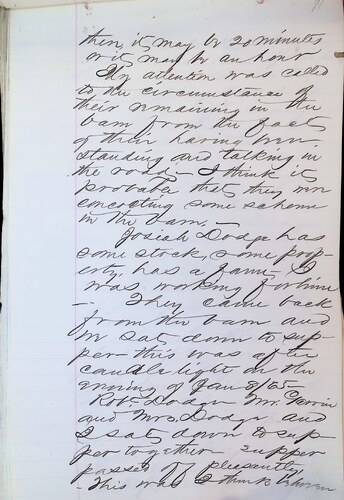 then, it may be 20 minutes
or it may be an hour
My attention was called
to the circumstance of
their remaining in the
barn from the fact
of their having been
standing and talking in
the road - I think it
probable that they were
concocting some scheme
in the barn. -
Josiah Dodge has
some stock, some prop-
erty, has a farm - I
was working for him
- They came back
from the barn and
we sat down to sup-
per - this was after
candle light on the
evening of Jan 8/65 -
Robt. Dodge Mr.
and Mrs. Dodge and
I sat down to sup-
per together supper
passed off pleasantly
- This was I think